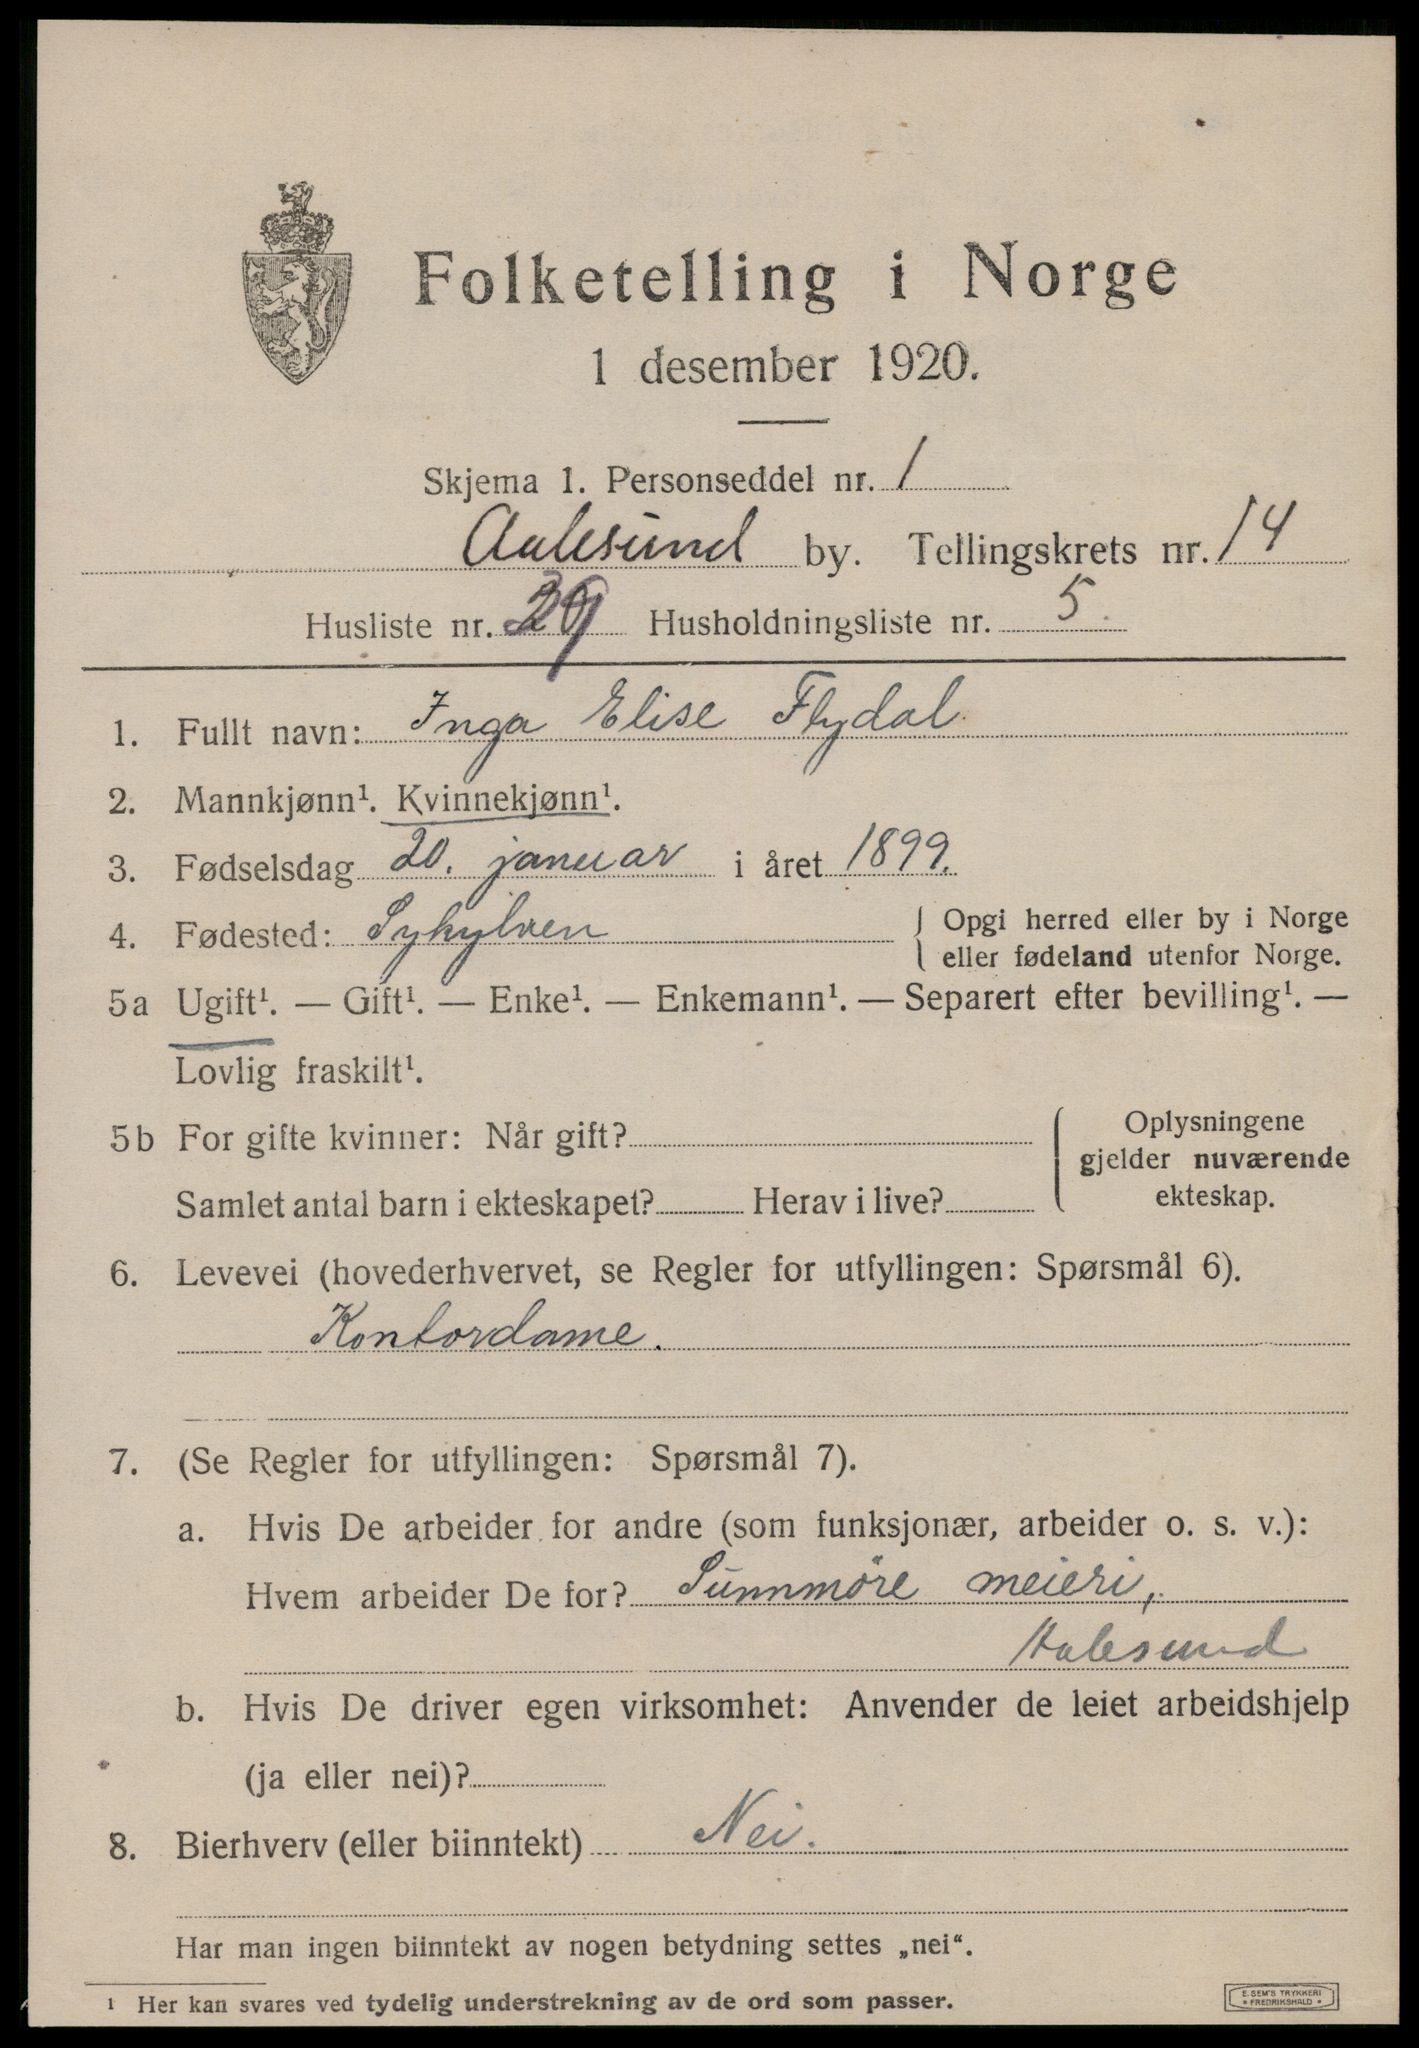 Folketelling i Norge
1 desember 1920.
Skjema 1. Personseddel nr. 1
Aalesund by. Tellingskrets nr. 14
Husliste nr. Husholdningsliste nr. 5.
1. Fullt navn: Inga Elise Flydal
2. Mannkjønn¹. Kvinnekjønn¹.
3. Fødselsdag 20. januar i året 1899.
4. Fødested: Sykylven { Opgi herred eller by i Norge
eller fødeland utenfor Norge.
5a Ugift¹. — Gift¹. — Enke¹. — Enkemann¹. — Separert efter bevilling¹. —
Lovlig fraskilt¹.
5b For gifte kvinner: Når gift?
Samlet antal barn i ekteskapet? Herav i live?
Oplysningene
gjelder nuværende
ekteskap.
6. Levevei (hovederhvervet, se Regler for utfyllingen: Spørsmål 6).
Kontordame.
7. (Se Regler for utfyllingen: Spørsmål 7).
a. Hvis De arbeider for andre (som funksjonær, arbeider o. s. v.):
Hvem arbeider De for? Sunnmöre meieri,
Aalesund
b. Hvis De driver egen virksomhet: Anvender de leiet arbeidshjelp
(ja eller nei)?
8. Bierhverv (eller biinntekt) Nei.
Har man ingen biinntekt av nogen betydning settes „nei“.
¹ Her kan svares ved tydelig understrekning av de ord som passer.
E. SEM'S TRYKKERI
* FREDRIKSHALD *